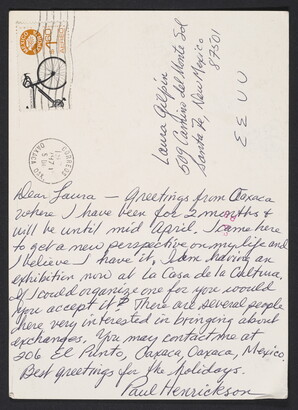 Laura Gilpin
509 Camino del Monte Sol
Santa Fe, New Mexico
87501
EE UU
CORREOS
OAXACA
Dear Laura — Greetings from Oaxaca
where I have been for 2 months &
will be until mid April. I came here
to get a new perspective on my life and
I believe I have it. I am having an
exhibition now at la Casa de la Cultura.
If I could organize one for you would
you accept it? There are several people
here very interested in bringing about
exchanges. You may contact me at
206 El Punto, Oaxaca, Oaxaca, Mexico.
Best greetings for the holidays.
Paul Henrickson